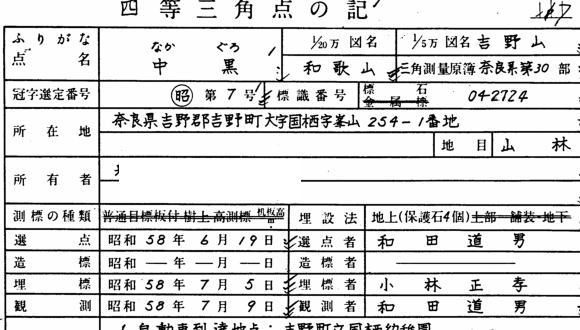 四等三角点の記
ふりがな なか ぐろ 1/20万 図名 1/5万 図名 吉野山
点名 中黒 和歌山 三角測量原簿 奈良県第30部
冠字選定番号 昭 第7号 標識番号 標石 金属標 042724
所在地 奈良県吉野郡吉野町大字国栖字峯山254-1番地
地目 山林
所有者
測標の種類 普通目標板付 樹上 高測標 埋設法 地上(保護石4個) 上部 舗装 地下
選点 昭和58年6月19日 選点者 和田道男
造標 昭和 — 年 — 月 — 日 造標者
埋標 昭和58年7月5日 埋標者 小林正孝
観測 昭和58年7月9日 観測者 和田道男
自動車到達地点: 吉野町立国栖幼稚園